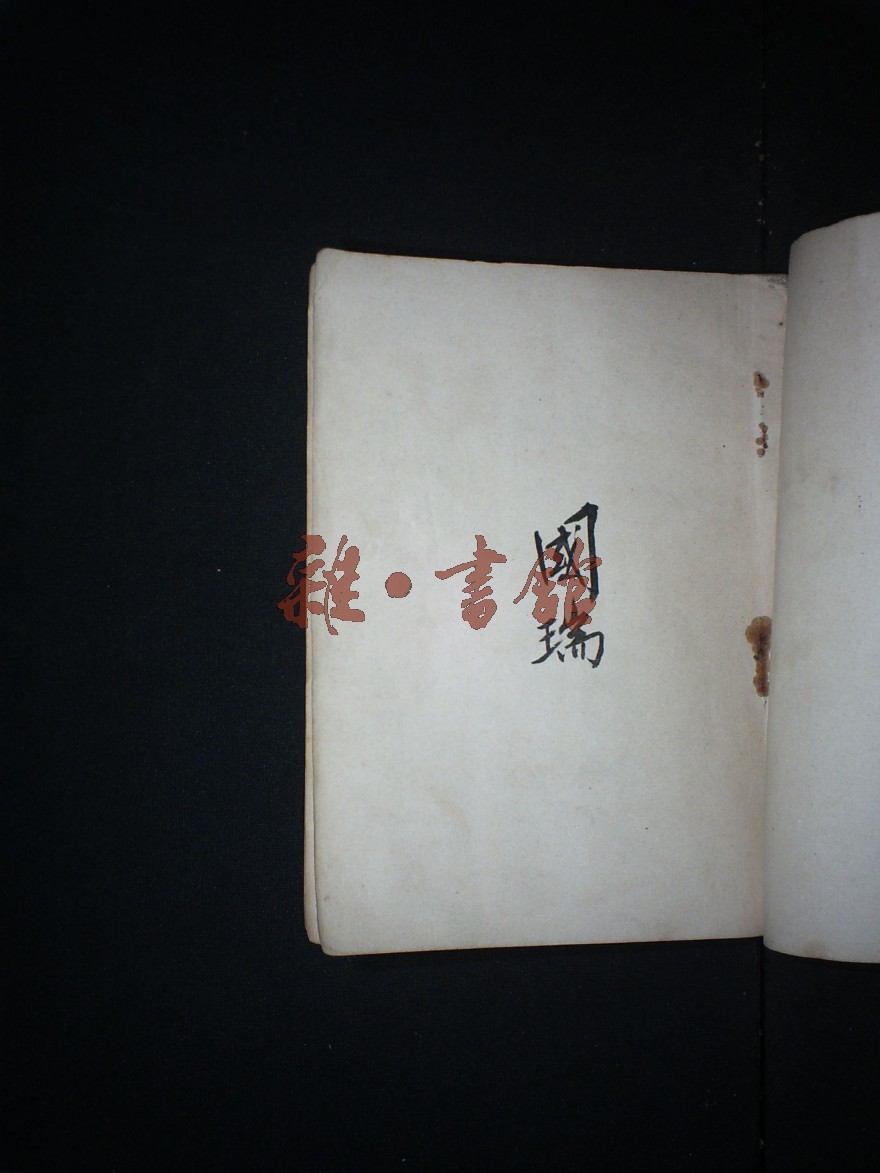 國瑞
雜·書館